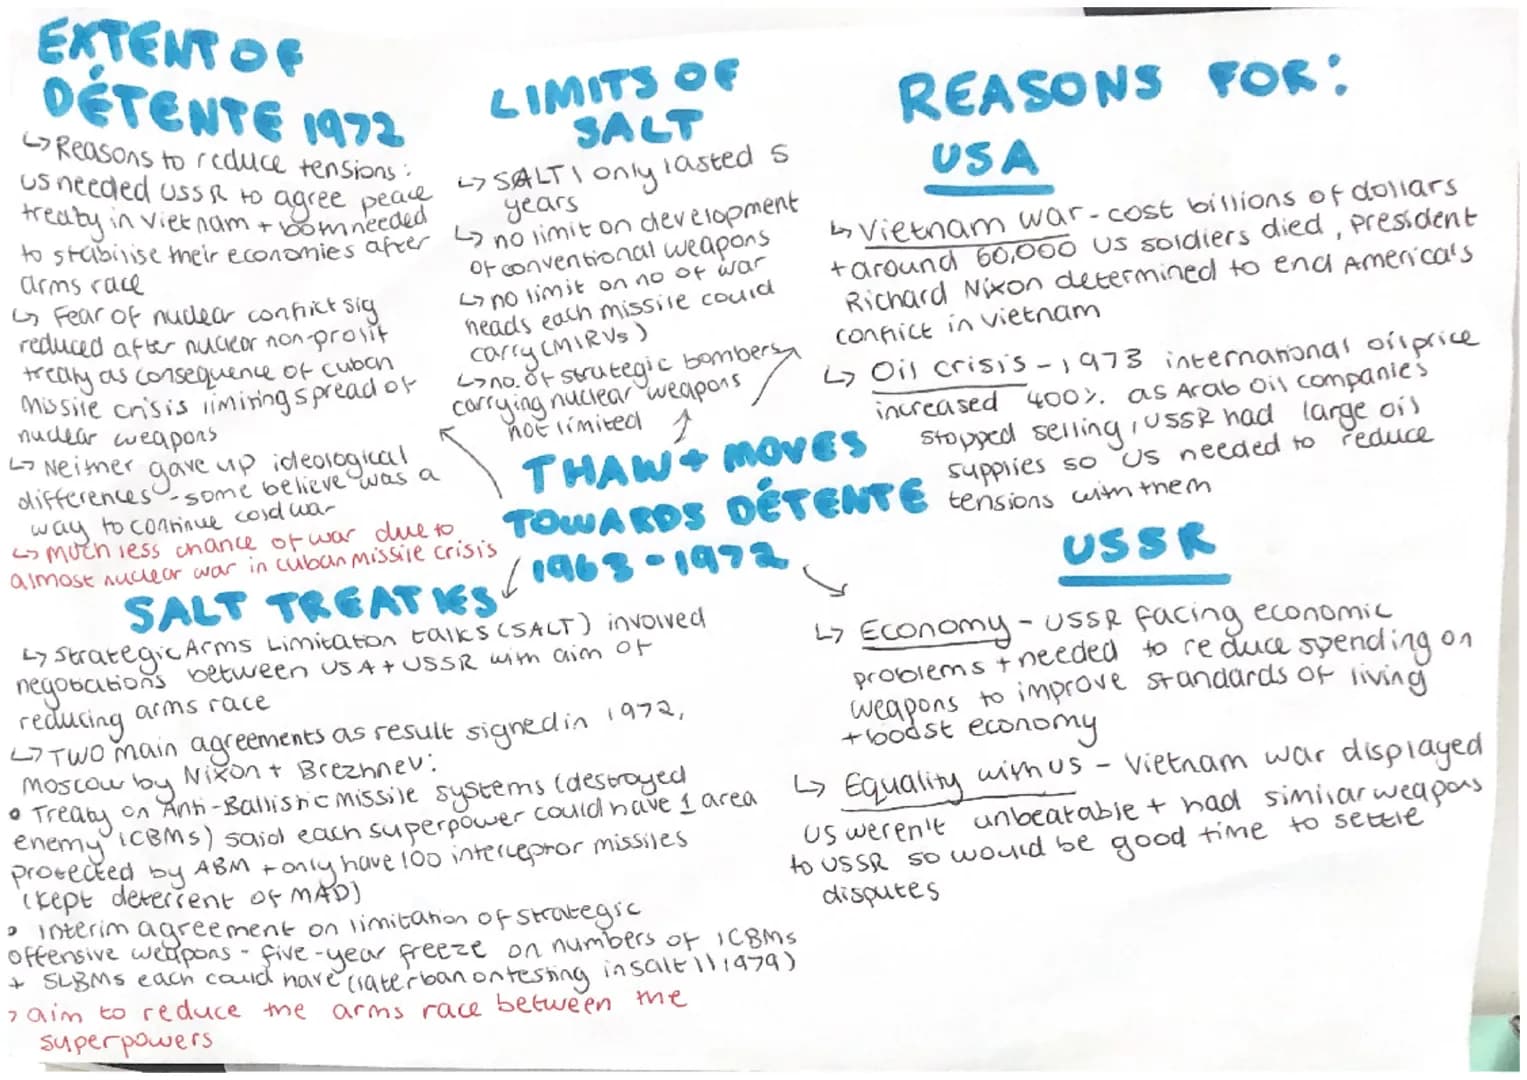 EXTENT OF
DÉTENTE 1972
↳ Reasons to reduce tensions:
US needed USSR to agree peace
treaty in Vietnam + both needed
to stabilise their economies after
arms race
↳ Fear of nuclear conflict sig
reduced after nuclear non-prolif
treaty as consequence of cuban
missile crisis limiting spread of
nuclear weapons
↳ Neither gave up ideological
differences - some believe was a
way to continue cold war
↳ much less chance of war due to
almost nuclear war in cuban missile crisis
LIMITS OF
SALT
↳ SALT 1 only lasted 5
years
↳ no limit on development
of conventional weapons
↳ no limit on no of war
heads each missile could
carry (MIRVs)
↳ no. of strategic bombers
carrying nuclear weapons
not limited
THAW + MOVES
TOWARDS DÉTENTE
1963-1972
SALT TREATIES
↳ Strategic Arms Limitation talks (SALT) involved
negotiations between USA + USSR with aim of
reducing arms race
↳ TWO main agreements as result signed in 1972,
Moscow by Nixon + Brezhnev:
• Treaty on Anti-Ballistic Missile systems (destroyed
enemy ICBMs) said each superpower could have 1 area
protected by ABM + only have 100 interceptor missiles
(kept deterrent of MAD)
• interim agreement on limitation of strategic
offensive weapons - five-year freeze on numbers of ICBMs
+ SLBMs each could have (later ban on testing in salt 11, 1979)
→ aim to reduce the arms race between the
superpowers
REASONS FOR:
USA
↳ Vietnam war - cost billions of dollars
+ around 60,000 US soldiers died, president
Richard Nixon determined to end America's
conflict in Vietnam
↳ Oil crisis - 1973 international oil price
increased 400% as Arab Oil companies
stopped selling, USSR had large oil
supplies so US needed to reduce
tensions with them
USSR
↳ Economy - USSR facing economic
problems + needed to reduce spending on
weapons to improve standards of living
+ boost economy
↳ Equality with US - Vietnam war displayed
US weren't unbeatable + had similar weapons
to USSR so would be good time to settle
disputes